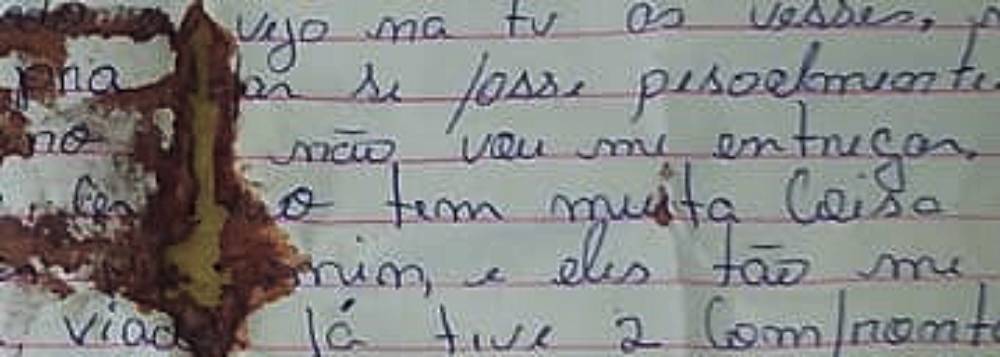 vejo na tv as vesses,
se fosse pesoalmente
no não vou me entregar,
o tem muita Coisa
mim, e eles tão me
viad Já tive 2 Comfronto